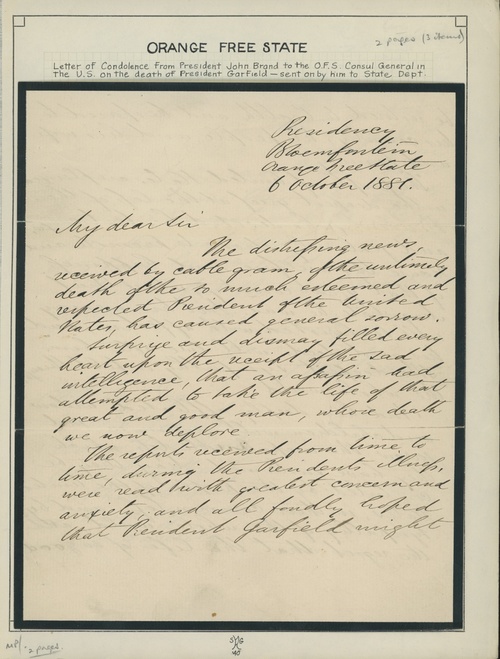 2 pages (3 items)
ORANGE FREE STATE
Letter of Condolence from President John Brand to the O.F.S. Consul General in
the U.S. on the death of President Garfield — sent on by him to State Dept.
Residency
Bloemfontein
Orange Free State
6 October 1881.
My dear Sir
The distressing news,
received by cable gram, of the untimely
death of the so much esteemed and
respected President of the United
States, has caused general sorrow.
Surprize and dismay filled every
heart upon the receipt of the sad
intelligence, that an assassin had
attempted to take the life of that
great and good man, whose death
we now deplore
The reports received from time to
time, during the Presidents illness,
were read with greatest concern and
anxiety, and all fondly hoped
that President Garfield might
2 pages.
40